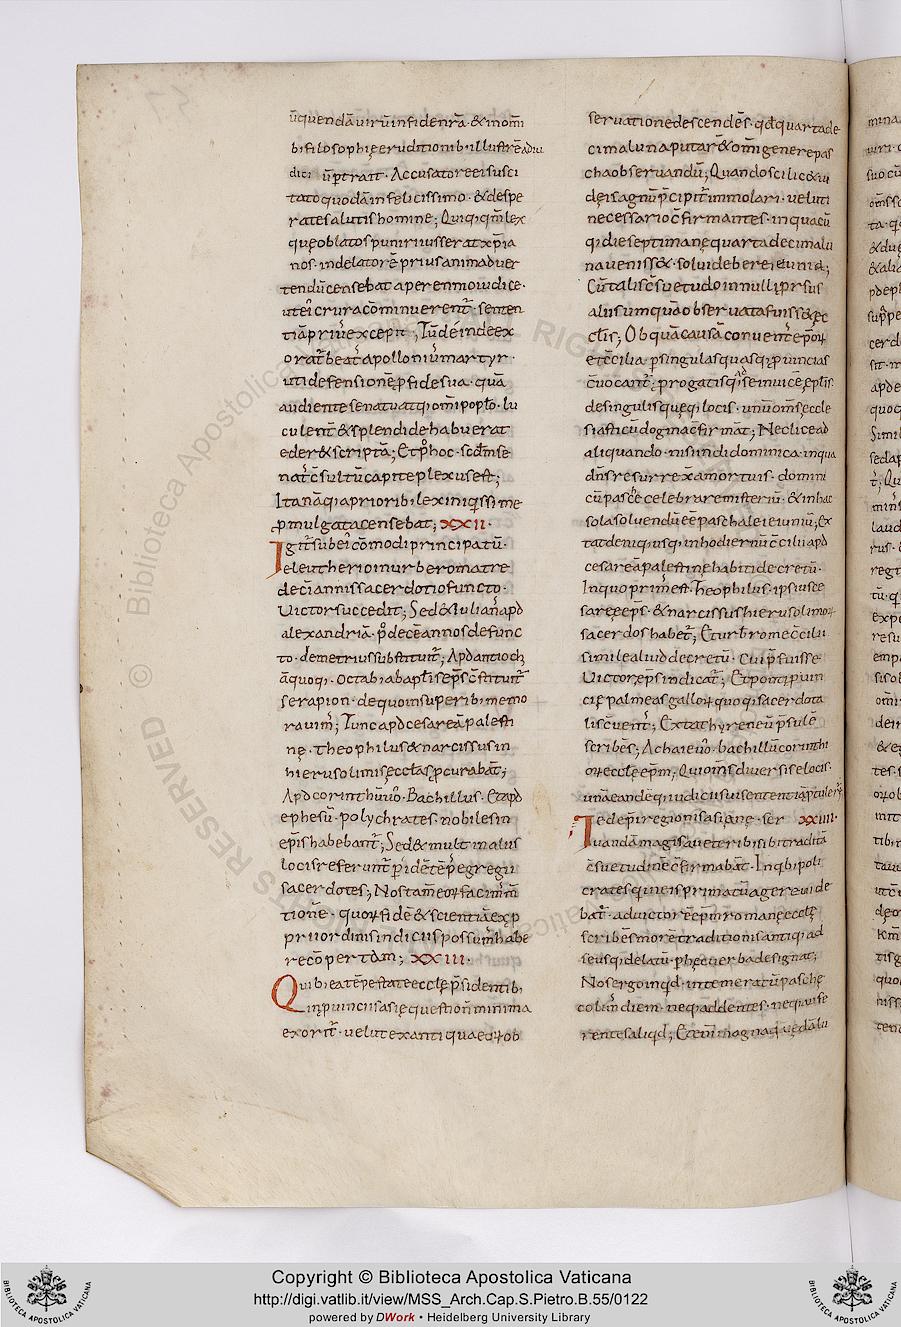 ū quendā virū infidentrā · & in om̄i
bi filosophię eruditionib illustrē adiu
dici ūp̄traɪt · Accusatore ei susci
tato quodā infelicissimo · & despe
rate salutis homine ; Qui qiqm̄ lex
que oblatos puniri iusserat xp̄ia
nos · in delatorē prius animaduer
tendū censebat aperenmo iudice ·
ute ei crura cōminuerent᷑ · senten
tiā priꝰ excepit ; Tūde inde ex
orat᷑ beat᷑ apolloniꝰ martyr ·
uti defensionē ꝓ fide sua · quā
audiente senatu atq; om̄i popło · lu
culent᷑ & splendide habuerat
eder& scriptā ; Et p̄ hoc · scd̄m se
nat᷑ c̄sultū capite plexus est ;
Ita nāq; a priorib lex iniqissime
ꝓmulgata censebat ; XXII ·
Igit᷑ sub ei᷑ cōmodi principatū ·
eleutherio in urbe romatre
decī annis sacerdotio functo ·
Victor succedit ; Sed & Iulian᷑ apd
alexandriā · p᷑ decē annos defunc
to · demetrius substituit᷑ ; Apd antioch
ā quoq; · octab ab apłis ep̄s c̄stituit᷑
serapion · de quo in superib memo
rauim᷑ ; Tunc apd cesareā palesti
nę · theophilus & narcissus in
hierusolimis ecclas ꝓcurabāt ;
Apd corinthū ūo · Bachillus · Et apd
ephesū · polychrates · nobiles in
ep̄is habebant᷑ ; Sed & multi in aliis
locis referunt᷑ p̱ idē tēp᷑ egregii
sacerdotes ; Nos tam̄ eoꝝ facim᷑ m̄
tionē · quoꝝ fidē & scientiā exp̱
pri iordinis indiciis possum᷑ habe
re cōpertam ; XXIII ·
Quib ea tēpestate eccle p̄sidentib᷑
in ꝓuinciis asię question̄ minima
exorit᷑ · velut ex antiqua eoꝝ ob
seruatione descendēs · qd̄ quartade
cima luna putar᷑ & om̄i genere pas
cha obseruandū ; Quando scilic& iu
deis agn᷑ p̄cipit᷑ immolari · veluti
necessario c̄firmantes · in quacū
qi die septimanę quartadecima lu
na uenisset · solui debere ieiunia ;
Cū talis c̄suetudo in nulli᷑ prsus
alius umquā obseruata fuiss& ec
clis ; Ob quā causā conuent᷑ ep̄oꝝ
et c̄cilia · p̱ singulas quasq; ꝓuincias
c̄uocant᷑ ; prorogatisq; se inuicē epłis
de singulis queq; locis · unū om̄s eccle
siasticū dogma c̄firmāt ; Ne clicead
aliquando · nisi in di dominica · in qua
dn̄s resurrex̄ a mortuis · domini
cū pasch̄e celebrare misteriū · & in hac
sola soluendū ēē paschale ieiuniū ; Ex
tat deniq; usq; in hodiernū c̄ciliū apd
cesareā palestinę habiti decretū ·
In quo prim᷑ est Theophilus · ipsius ce
sareę ep̄s · & narcissus hierusolimoꝝ
sacerdos habet᷑ ; Et urb̄ rome c̄cilii
simile aliud decretū · Cui p̄fuisse
Victor ep̄s indicat᷑ ; Et ponti p̱uin
cię palmeas gallorꝝ quoqi sacerdota
lis c̄uent᷑ ; Extat hyreneū p̄sulē
scribēs ; Achaie ūo · bachillū corinthi
oꝝ eccle ep̄m ; Qui om̄s diuersis e locis ·
unā eandēq; iudicii sui sententiā ꝓtuler᷑
Ied ep̄i regionis asianę · ser XXIIII ·
uandā magis a ueterib sibi traditā
c̄suetudinē c̄firmabāt · In qb ipoli
crates qi in eis primatū agere uide
bat᷑ · ad uictorē ep̄m romanę eccłe
scribēs more traditionis antiqi ad
se usqi delatū · p̱ hęc uerba designat ;
Nos ergo inqd · intemeratū paschę
colim᷑ diem · neqi addentes · neqi aufe
rentes aliqd ; Etenī magna qi uędā lu
Copyright © Biblioteca Apostolica Vaticana
http://digi.vatlib.it/view/MSS_Arch.Cap.S.Pietro.B.55/0122
powered by DWork • Heidelberg University Library